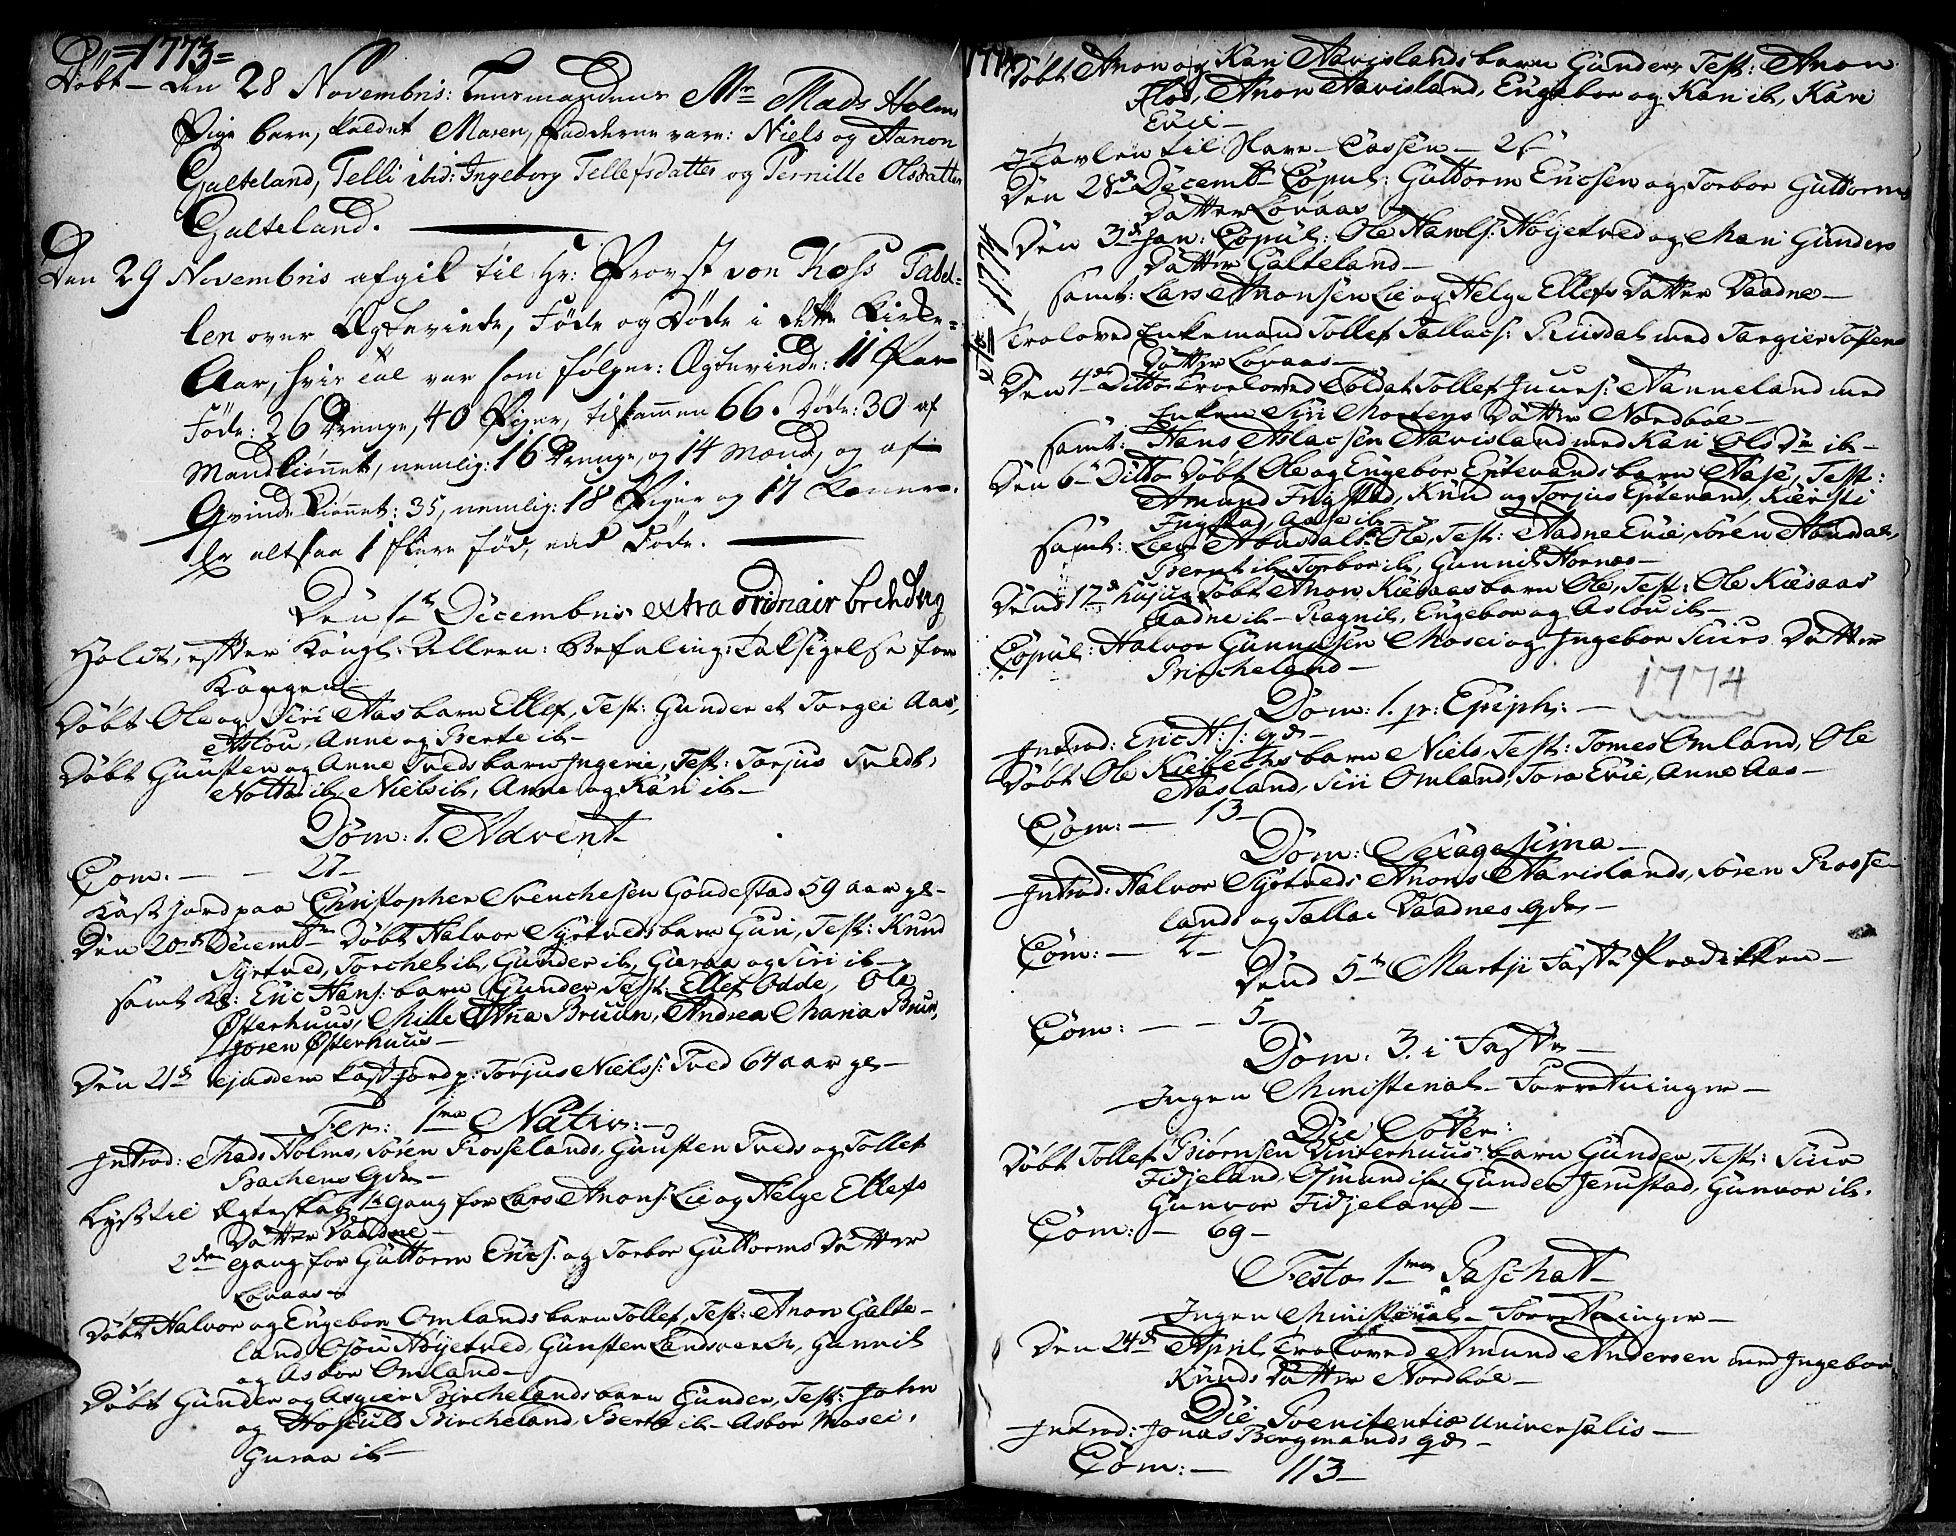 =1773=
Döbt - den 28 Novembris: Lensmandens Mr Mads Holms
Pige barn, kaldet Maren, fadderne vare: Niels og Aanon
Galteland, Telli ibid: Ingeborg Tellefsdatter og Pernille Olsdatter
Galteland.
Den 29 Novembris afgik til Hr: Provst von Koss Tabel=
len over Ægteviede, Föde og Döde i dette Kirke=
Aar, hvis tal var som fölger: Ægteviede: 11 Par
Föde: 26 Drenge, 40 Piger, tilsammen 66. Döde: 30 af
Mandkiönnet, nemlig: 16 Drenge, og 14 Mænd, og af
Qvindekiönnet: 35, nemlig: 18 Piger og 17 Konner.
Er altsaa 1 flere föd, end Döde.
Den 1ste Decembris extra ordinair bededag
Holdt, efter Kongl: Allern: Befaling: Taksigelse for
Döbt Ole og Siri Aas barn Ellef, Test: Gunder et Torgei Aas,
Aslou, Anne og Berte ib-
Döbt Gunsten og Anne Tveds barn Ingerie, Test: Torjus Tvedt,
Notto ib, Niels ib, Anne og Kari ib-
Dom: 1. Advent
Com: - - 27-
Kast jord paa Christopher Svenchesen Goudestad 59 aar gl-
Den 20de Decembr Döbt Halvor Syrtveds barn Guri, Test: Knud
Syrtved, Torchel ib, Gunder ib, Guroe og Siri ib-
samt Kl: Eric Hans: barn Gunder, Test: Ellef Odde, Ole
Østerhuus, Mille Ana Bruun, Andrea Maria Brun,
Joren Østerhuus-
Den 21de ejusdem kast jord p: Torjus Niels: Tved 64 aar gl-
Fer: 1ma Nativ:-
Introd: Mads Holms, Sören Rosselands, Gunsten Tveds og Tollef
Bachens Qdr-
Lyst til Ægteskab 1te gang for Lars Anons: Lie og Helge Ellefs
Datter Vaadne-
2den gang for Guttorm Erics: og Torbor Guttorms Datter
Lovaas-
Döbt Halvor og Engebor Omlands barn Tollef, Test: Anon Galte-
land, Osou Höyetved, Gunsten Landverch, Gunnil
og Asbor Omland-
Döbt Gunder og Asgier Bircheland barn Gunder, Test: John
og Hoscul Bircheland, Berte ib- Asbor Mosei,
Guroe ib-
1774
Döbt Anon og Kari Aavislands barn Gunder, Test: Anon
Flod, Anon Aavisland, Engebor og Kari ib, Kari
Evie-
I Tavlen til Slave-Cassen - 2
Den 28de Decembr Copul: Guttorm Ericsen og Torbor Guttorms
Datter Lovaas
1774
Den 3de Jan: Copul: Ole Hanes: Höyetved og Mari Gunders
Datter Galteland-
samt: Lars Anonsen Lie og Helge Ellefs Datter Vaadne-
Troloved Enkemand Tollef Tallacs: Riisdal med Targier Tostens
Datter Lovaas-
Den 4de Ditto Troeloved Soldat Tollef Juurs: Nanneland med
Enken Siri Mortens Datter Nordböe-
samt: Hans Aslacsen Aavisland med Kari Ols Dr ib-
Den 6- Ditto Döbt Ole og Engebor Eptevands barn Aase, Test:
Amund Fugstad, Knud og Torjus Eptevand, Kiersti
Fugstad, Aase ib-
samt: Liev Abusdals: Ole, Test: Aadne Evie, Sören Abusdal,
Bernt ib, Torbor ib, Gunnil Hornæs-
Dend 17de hujus Döbt Anon Kiesaas barn Ole, Test: Ole Kiesaas
Aadne ib- Ragnil, Engebor og Aslou ib-
Copul: Halvor Gunnusen Mosei og Ingebor Siurs Datter
Bircheland-
1774
Dom: 1. p: Epiph:-
Introd: Eric H: s: qd-
Döbt Ole Kiebeths barn Niels, Test: Tomes Omland, Ole
Aasland, Siri Omland, Tora Evie, Anne Aas-
Com: - 13-
Dom: Sexagesima-
Introd: Halvor Syrtveds Anons Aavislands, Sören Rosse-
lands og Tallac Vaadnes Qdr-
Com: - 4-
Dend 5te Martji Faste Prædikken-
Com: - - 5-
Dom: 3. i Faste-
Ingen Ministerial-Forretninger-
Die
Döbt Tollef Biörnsen Vinterhuus barn Gunder, Test: Siur
Fidjeland, Osmund ib, Gunder Jerustad, Gunvor ib,
Gunvor Fidjeland-
Com: - 69-
Festo 1mo Paschat-
Ingen Ministerial-Forretninger-
Den 24de April Troloved Amund Andersen med Ingebor
Knuds Datter Nordböe-
Die Poenitentiæ Universalis-
Introd: Jonas Bergmands qd-
Com: - 113-